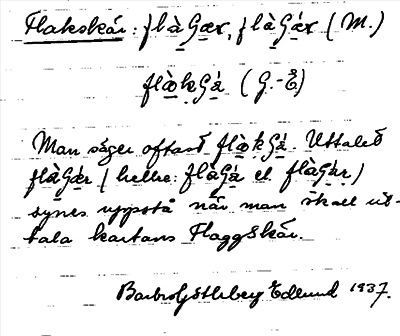 Flakskär: flàGær, flàGár (M.)
flàkGá (G.-E)
Man säger oftast flàkGá. Uttalet
flàGár (heller: flàGá el. flàGár)
synes uppstå när man skall ut-
tala kartans Flaggskär.
Edlund 1937.